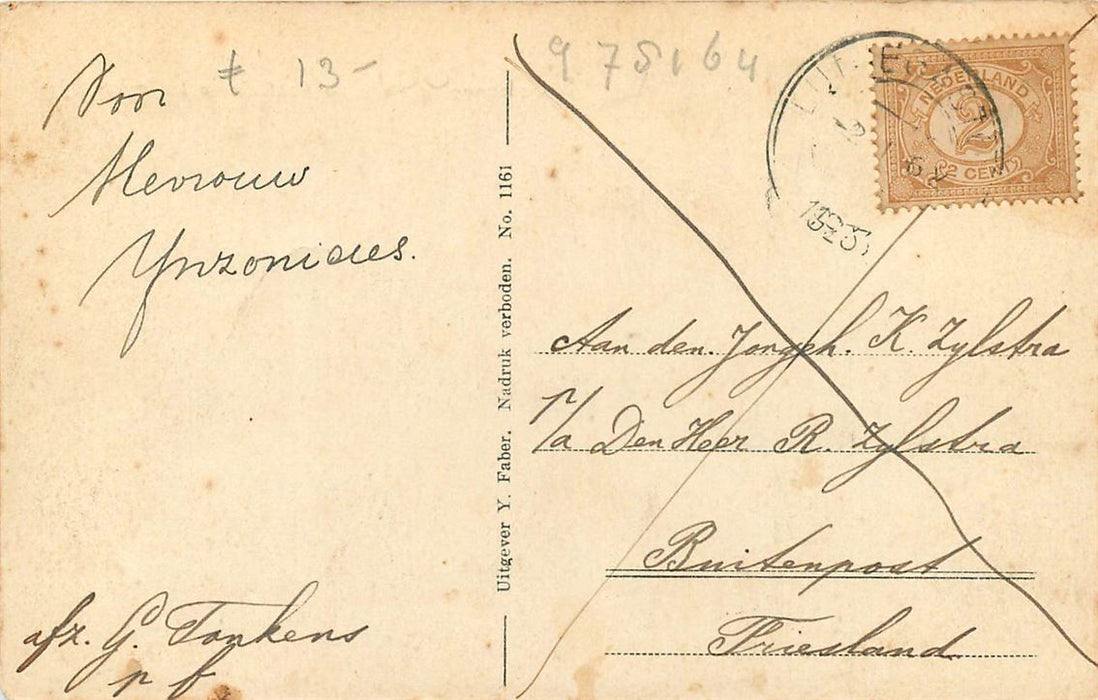 Voor
Mevrouw
Ynzonides.
afz. G. Tonkens
p f
13-
975164
Uitgever Y. Faber. Nadruk verboden. No. 1161
NEDERLAND
2
2 CENT
Aan den. Jongeh. K. Zylstra
p/a Den Heer R. Zylstra
Buitenpost
Friesland